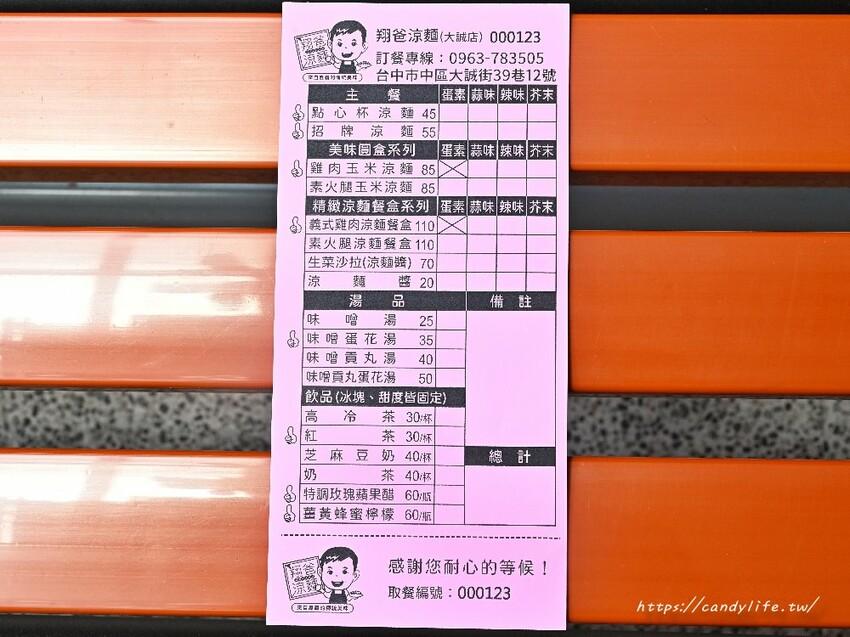 翔爸涼麵
翔爸涼麵(大誠店) 000123
訂餐專線：0963-783505
台中市中區大誠街39巷12號
主餐 蛋素 蒜味 辣味 芥末
點心杯涼麵 45
招牌涼麵 55
美味圓盒系列 蛋素 蒜味 辣味 芥末
雞肉玉米涼麵 85
素火腿玉米涼麵 85
精緻涼麵餐盒系列 蛋素 蒜味 辣味 芥末
義式雞肉涼麵餐盒 110
素火腿涼麵餐盒 110
生菜沙拉(涼麵醬) 70
涼麵醬 20
湯品 備註
味噌湯 25
味噌蛋花湯 35
味噌貢丸湯 40
味噌貢丸蛋花湯 50
飲品(冰塊、甜度皆固定)
高冷茶 30/杯
紅茶 30/杯
芝麻豆奶 40/杯 總計
奶茶 40/杯
特調玫瑰蘋果醋 60/瓶
薑黃蜂蜜檸檬 60/瓶
翔爸涼麵
感謝您耐心的等候！
取餐編號：000123
https://candylife.tw/